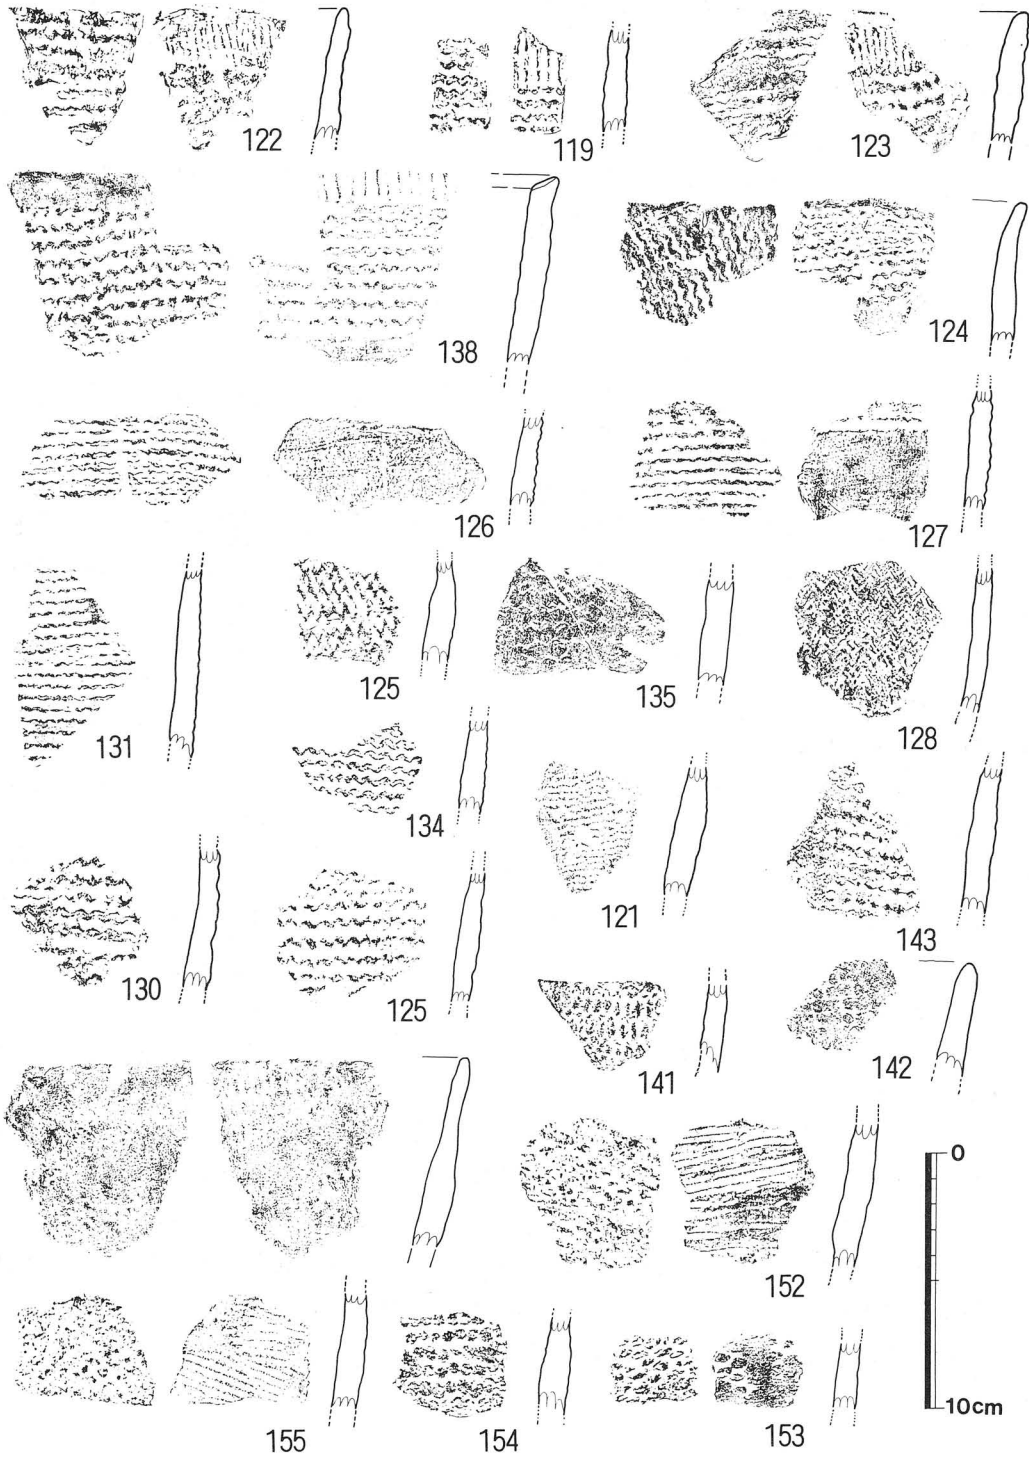 122
119
123
138
124
126
127
131
125
135
128
134
121
143
130
125
141
142
0
152
10cm
155
154
153